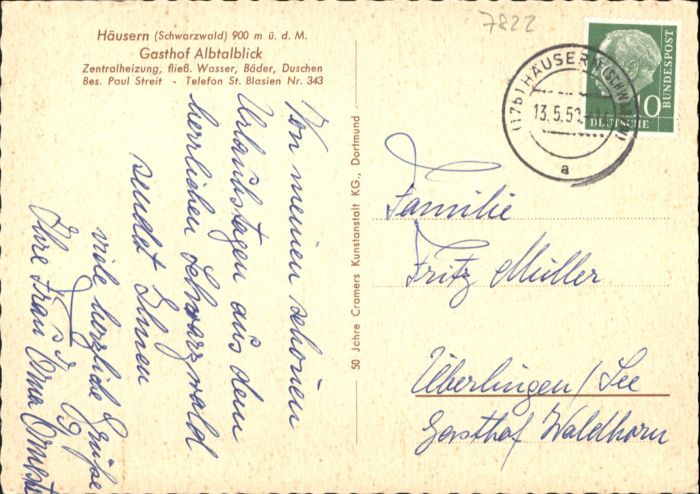 7822
Häusern (Schwarzwald) 900 m ü. d. M.
Gasthof Albtalblick
Zentralheizung, fließ. Wasser, Bäder, Duschen
Bes. Paul Streit - Telefon St. Blasien Nr. 343
Von meinen schönen
Urlaubstagen aus dem
herrlichen Schwarzwald
sendet Ihnen
viele herzliche Grüße
Ihre Frau
50 Jahre Cramers Kunstanstalt KG., Dortmund
(17b) HÄUSERN (SCHWARZW)
13.5.5
a
DEUTSCHE
BUNDESPOST
Familie
Fritz Müller
Überlingen/See
Gasthof Waldhorn